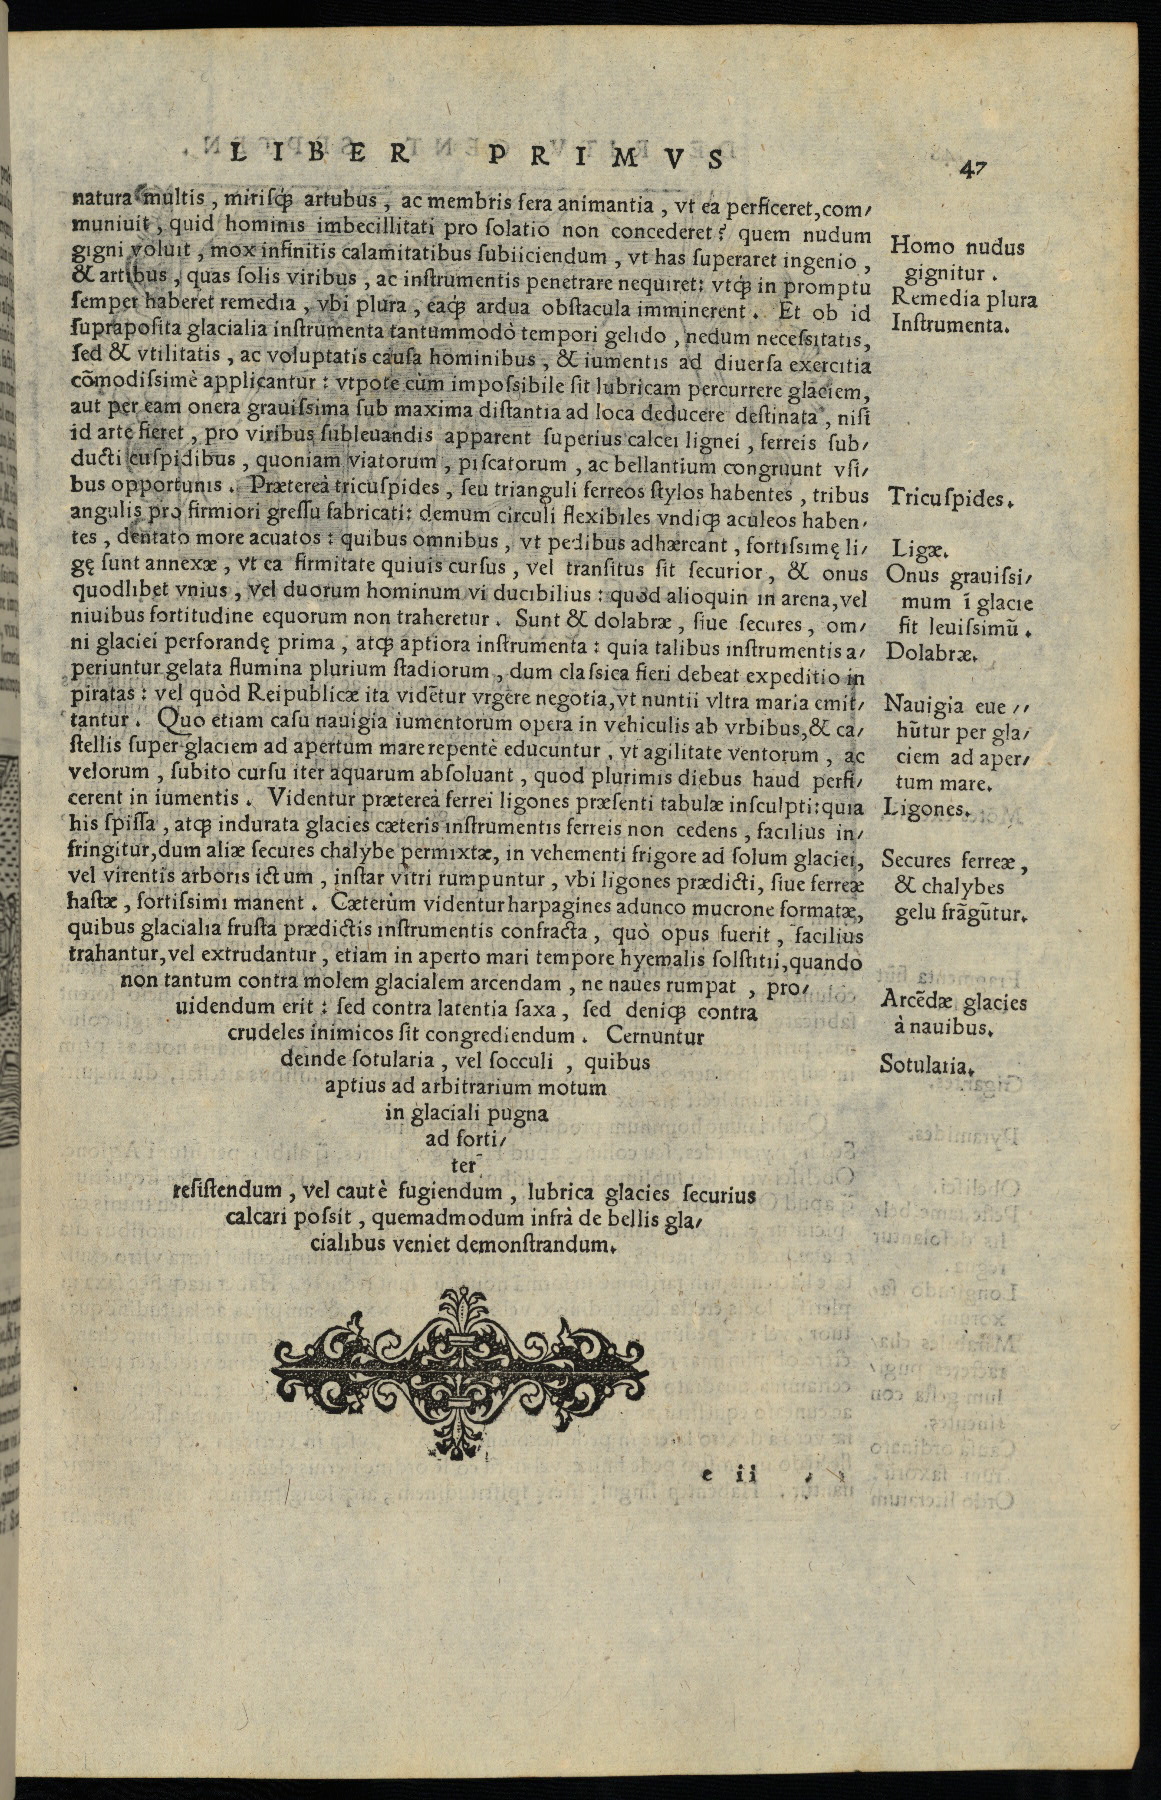 LIBER PRIMVS
47
natura multis, mirisq́ꝫ artubus, ac membris fera animantia, vt ea perficeret, com⸗
muniuit, quid hominis imbecillitati pro solatio non concederet? quem nudum
gigni voluit, mox infinitis calamitatibus subiiciendum, vt has superaret ingenio,
& artibus, quas solis viribus, ac instrumentis penetrare nequiret: vtq́ꝫ in promptu
semper haberet remedia, vbi plura, eaq́ꝫ ardua obstacula imminerent. Et ob id
supraposita glacialia instrumenta tantummodò tempori gelido, nedum necessitatis,
sed & vtilitatis, ac voluptatis causa hominibus, & iumentis ad diuersa exercitia
cõmodissimè applicantur: vtpote cùm impossibile sit lubricam percurrere glaciem,
aut per eam onera grauissima sub maxima distantia ad loca deducere destinata, nisi
id arte fieret, pro viribus subleuandis apparent superius calcei lignei, ferreis sub⸗
ducti cuspidibus, quoniam viatorum, piscatorum, ac bellantium congruunt vsi⸗
bus opportunis. Prætereà tricuspides, seu trianguli ferreos stylos habentes, tribus
angulis pro firmiori gressu fabricati: demum circuli flexibiles vndiqꝫ aculeos haben⸗
tes, dentato more acuatos: quibus omnibus, vt pedibus adhæreant, fortissimę li⸗
gę sunt annexæ, vt ea firmitate quiuis cursus, vel transitus sit securior, & onus
quodlibet vnius, vel duorum hominum vi ducibilius: quod alioquin in arena, vel
niuibus fortitudine equorum non traheretur. Sunt & dolabræ, siue secures, om⸗
ni glaciei perforandę prima, atqꝫ aptiora instrumenta: quia talibus instrumentis a⸗
periuntur gelata flumina plurium stadiorum, dum classica fieri debeat expeditio in
piratas: vel quòd Reipublicæ ita vidẽtur vrgere negotia, vt nuntii vltra maria emit⸗
tantur. Quo etiam casu nauigia iumentorum opera in vehiculis ab vrbibus, & ca⸗
stellis super glaciem ad apertum mare repentè educuntur, vt agilitate ventorum, ac
velorum, subito cursu iter aquarum absoluant, quod plurimis diebus haud perfi⸗
cerent in iumentis. Videntur prætereà ferrei ligones præsenti tabulæ insculpti: quia
his spissa, atqꝫ indurata glacies cæteris instrumentis ferreis non cedens, facilius in⸗
fringitur, dum aliæ secures chalybe permixtæ, in vehementi frigore ad solum glaciei,
vel virentis arboris ictum, instar vitri rumpuntur, vbi ligones prædicti, siue ferreæ
hastæ, fortissimi manent. Cæterùm videntur harpagines adunco mucrone formatæ,
quibus glacialia frusta prædictis instrumentis confracta, quò opus fuerit, facilius
trahantur, vel extrudantur, etiam in aperto mari tempore hyemalis solstitii, quando
non tantum contra molem glacialem arcendam, ne naues rumpat, pro⸗
uidendum erit: sed contra latentia saxa, sed deniqꝫ contra
crudeles inimicos sit congrediendum. Cernuntur
deinde sotularia, vel socculi, quibus
aptius ad arbitrarium motum
in glaciali pugna
ad forti⸗
ter
resistendum, vel cautè fugiendum, lubrica glacies securius
calcari possit, quemadmodum infrà de bellis gla⸗
cialibus veniet demonstrandum.
e ii
Homo nudus
gignitur.
Remedia plura
Instrumenta.
Tricuspides.
Ligæ.
Onus grauissi⸗
mum ĩ glacie
fit leuissimũ.
Dolabræ.
Nauigia eue⸗
hũtur per gla⸗
ciem ad aper⸗
tum mare.
Ligones.
Secures ferreæ,
& chalybes
gelu frãgũtur.
Arcẽdæ glacies
à nauibus.
Sotularia.